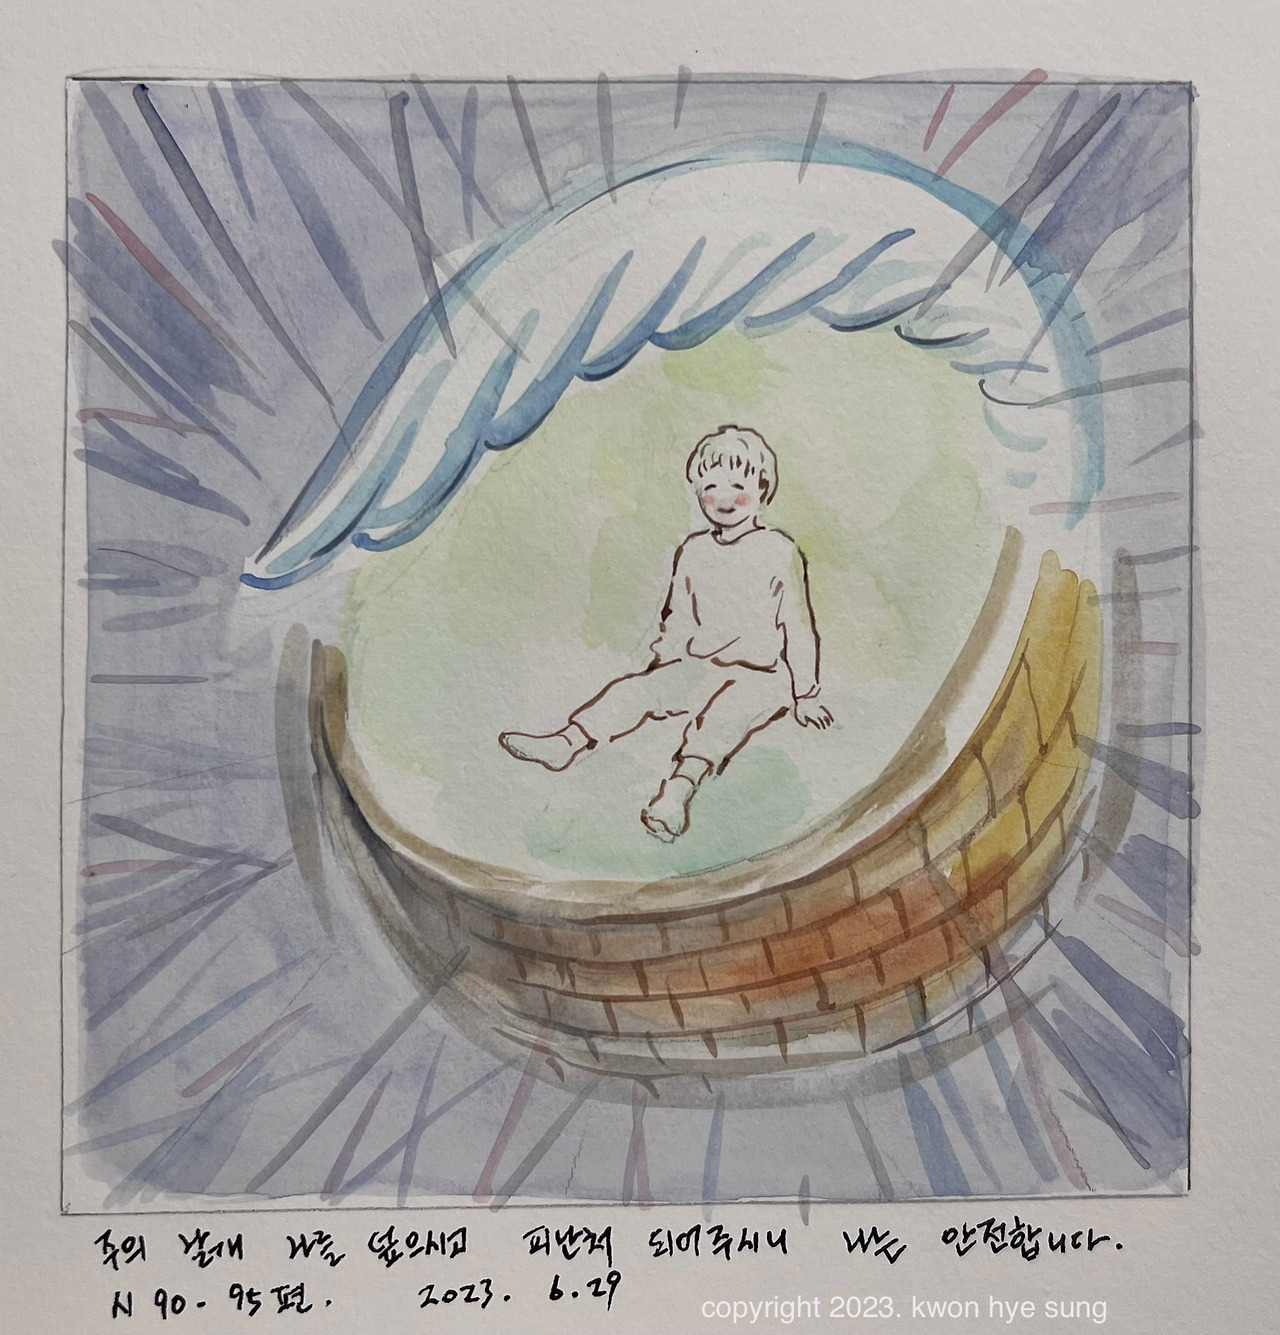 주의 날개 나를 덮으시고 피난처 되어주시니 나는 안전합니다.
시 90 - 95편. 2023. 6.29
copyright 2023. kwon hye sung